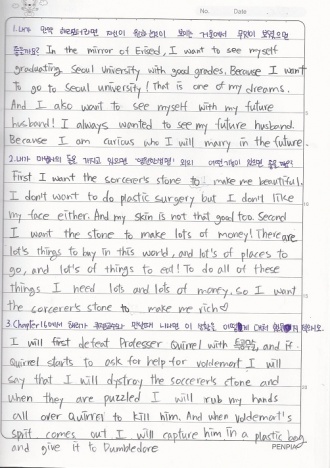 No. Date
1. 내가 만약 해리포터라면 자신이 원하는것이 보이는 거울에서 무엇이 보였으면
좋을까요? In the mirror of Erised, I want to see myself
graduating Seoul University with good grades. Because I want
to go to Seoul university! That is one of my dreams.
And I also want to see myself with my future
husband! I always wanted to see my future husband.
Because I am curious who I will marry in the future.
2. 내가 마법사의 돌을 가지고 있으면 "영원한생명" 외의 어떤기능이 있으면 좋을까?
First I want the sorcerer's stone to make me beautiful.
I don't want to do plastic surgery but I don't like
my face either. And my skin is not that good too. Second
I want the stone to make lots of money! There are
lot's things to buy in this world, and lot's of places to
go, and lot's of things to eat! To do all of these
things I need lots and lots of money. so I want
the sorcerer's stone to make me rich♡
3. Chapter16에서 해리가 퀴렐교수와 만났는데 나라면 이 상황을 어떻게 대처
I will first defeat Professer Quirrel with and if
Quirrel starts to ask for help for voldemort I will
say that I will dystroy the soccerer's stone and
when they are puzzled I will rub my hands
all over Quirrel to kill him. And when voldemort's
sprit comes out I will capture him in a plastic bag
and give it to Dumbledore
PENPIA